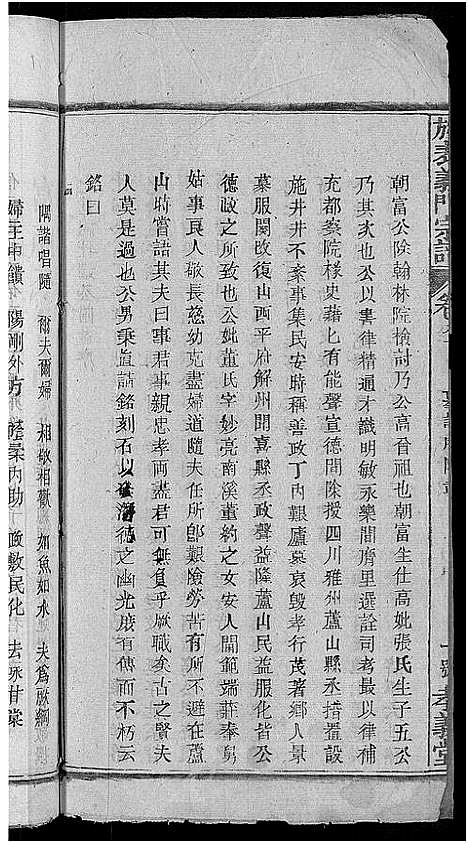 朝富公除翰林院檢討乃公高晉祖也朝富生仕高妣張氏生子五公
乃其次也公以書律精通才識明敏永樂間膺里選詮司考最以律補
充都察院椽史藉匕有能聲宣德間除授四川雅州蘆山縣丞措置設
施井井不紊事集民安時稱善政丁內艱廬哀哀毀孝行茂著鄉人景
慕服闋改復山西平府解州聞喜縣丞政聲益隆蘆山民益服化皆公
德政之所致也公妣董氏字妙亮南溪董約之女安人閫範端莊奉舅
姑事良人敬長慈幼克盡婦道隨夫任所卽艱險勞苦有所不避在蘆
山時嘗語其夫曰事君事親忠孝兩盡君可無負乎厥職矣古之賢夫
人莫是過也公男貞請銘刻石以發潛德之幽光庶有傳而不朽云
銘曰
隅諧唱隨 爾夫爾婦 相敬相歡 如魚如水 夫爲厥綱
婦主中饋 陽剛外方 蔭柔內助 政敷民化 去詠甘棠
旌表義門宗譜 卷
孝義堂